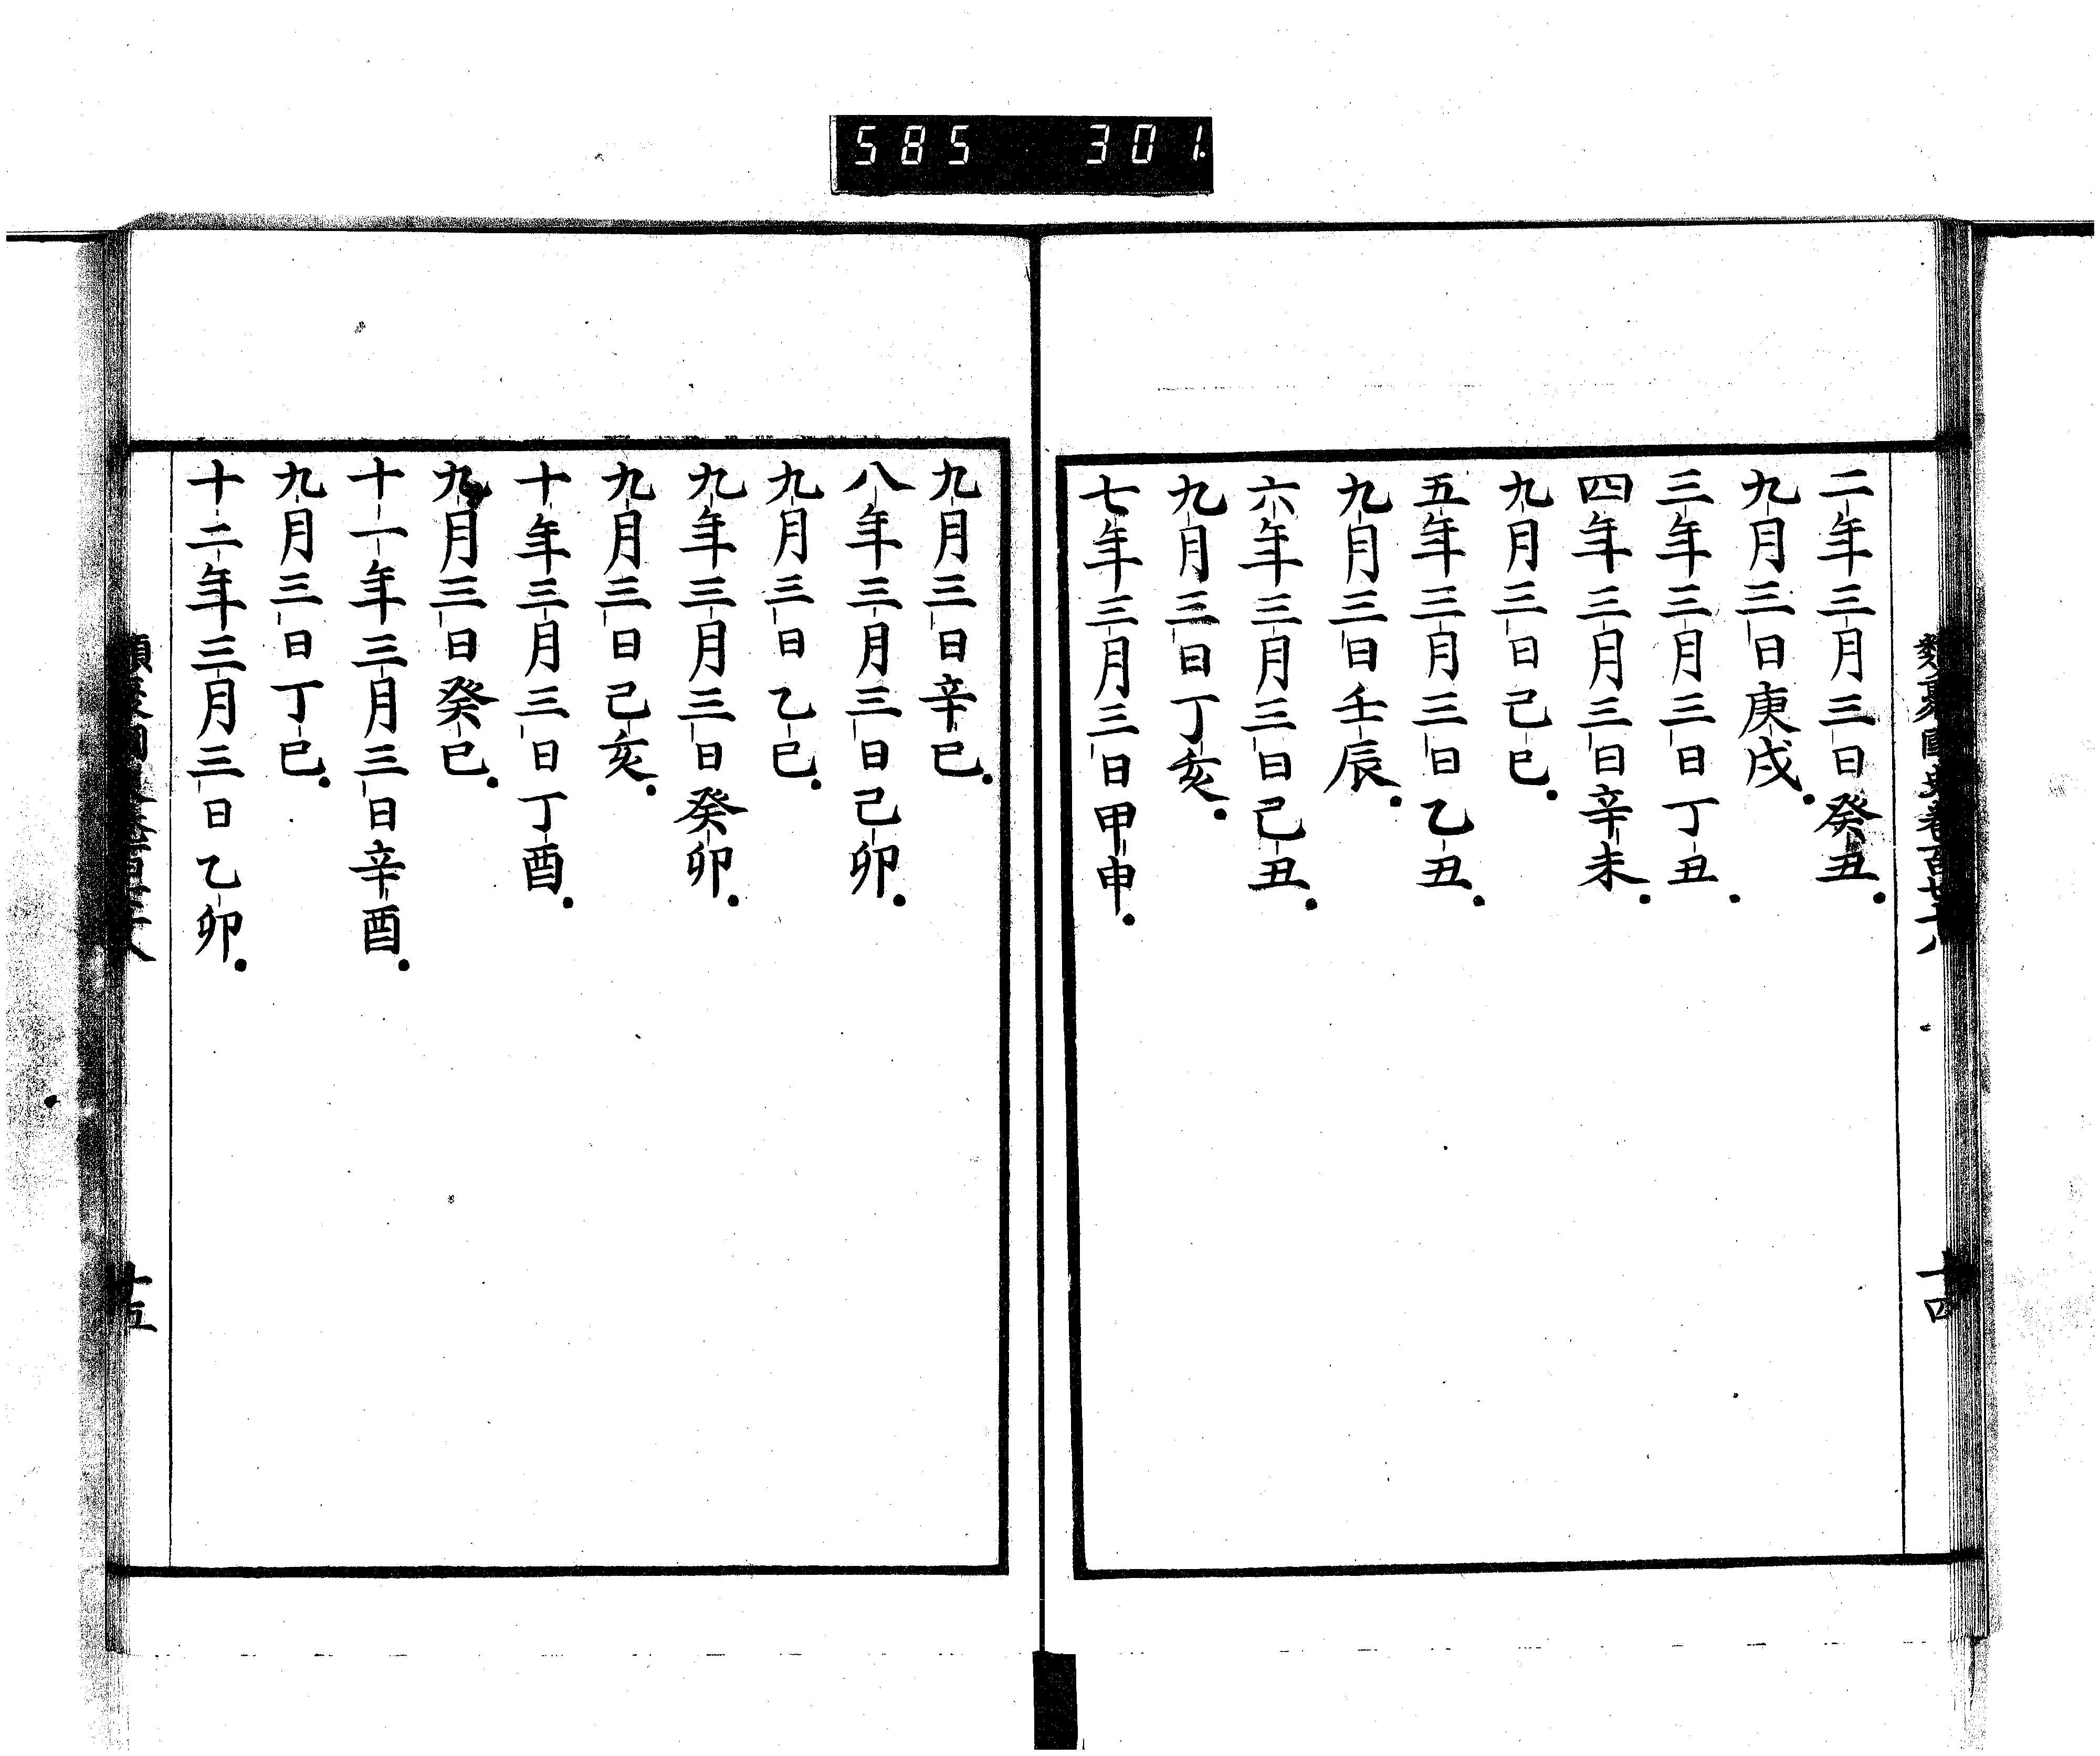 585 301
二年三月三日癸丑
九月三日庚戌
三年三月三日丁丑
四年三月三日辛未
九月三日己巳
五年三月三日乙丑
九月三日壬辰
六年三月三日己丑
九月三日丁亥
七年三月三日甲申
十四
九月三日辛巳
八年三月三日己卯
九月三日乙巳
九年三月三日癸卯
九月三日己亥
十年三月三日丁酉
九月三日癸巳
十一年三月三日辛酉
九月三日丁巳
十二年三月三日乙卯
十五